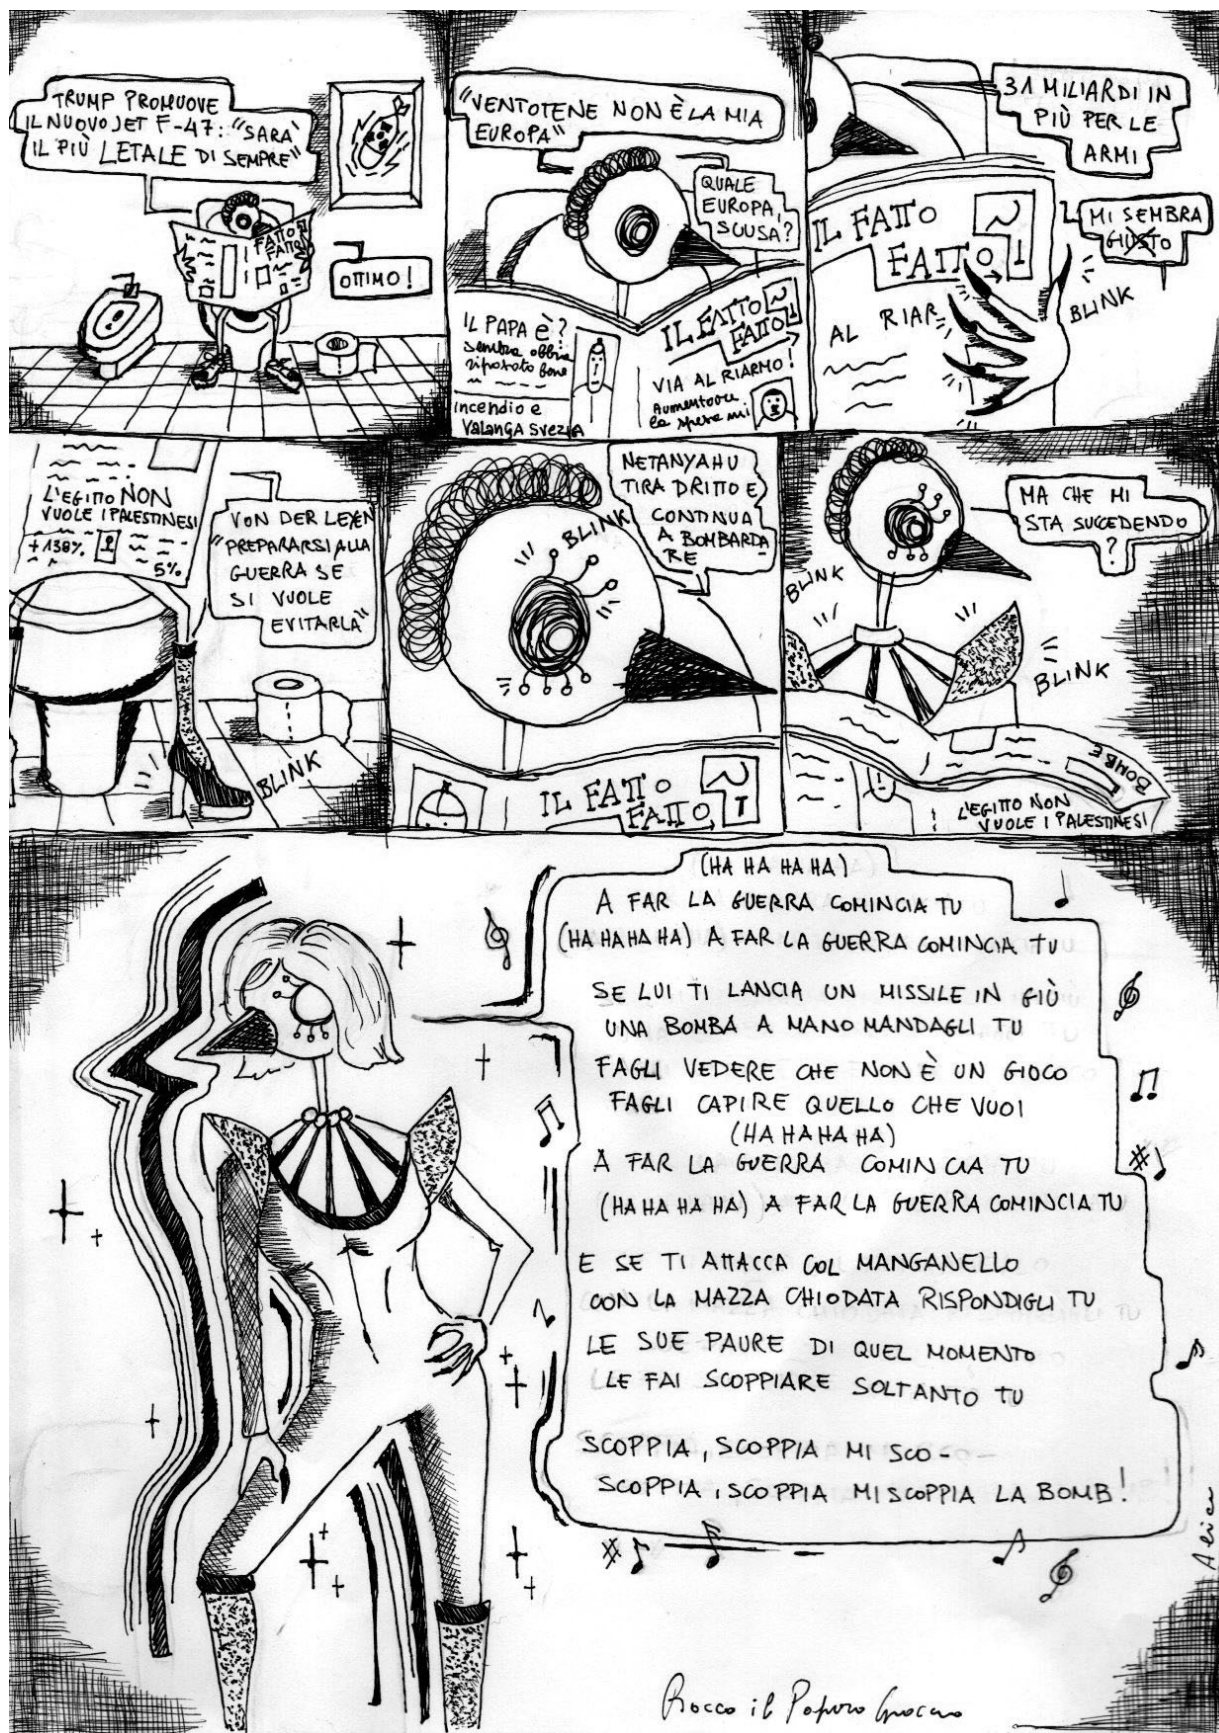 TRUMP PROMUOVE
IL NUOVO JET F-47: "SARÀ
IL PIÙ LETALE DI SEMPRE"
FATTO
FATTO
OTTIMO!
"VENTOTENE NON È LA MIA
EUROPA"
QUALE
EUROPA,
SCUSA?
IL PAPA È?
sembra abbia
riposato bene
incendio e
VALANGA SVEZIA
IL FATTO
FATTO
VIA AL RIARMO!
Aumentare
le spese mi
31 MILIARDI IN
PIÙ PER LE
ARMI
IL FATTO
FATTO
MI SEMBRA
GIUSTO
BLINK
AL RIAR
L'EGITTO NON
VUOLE I PALESTINESI
+138%
5%
VON DER LEYEN
"PREPARARSI ALLA
GUERRA SE
SI VUOLE
EVITARLA"
BLINK
NETANYAHU
TIRA DRITTO E
CONTINUA
A BOMBARDA
RE
BLINK
IL FATTO
FATTO
MA CHE MI
STA SUCCEDENDO
?
BLINK
BLINK
BOMBE
L'EGITTO NON
VUOLE I PALESTINESI
(HA HA HA HA)
A FAR LA GUERRA COMINCIA TU
(HA HA HA HA) A FAR LA GUERRA COMINCIA TU
SE LUI TI LANCIA UN MISSILE IN GIÙ
UNA BOMBA A MANO MANDAGLI TU
FAGLI VEDERE CHE NON È UN GIOCO
FAGLI CAPIRE QUELLO CHE VUOI
(HA HA HA HA)
A FAR LA GUERRA COMINCIA TU
(HA HA HA HA) A FAR LA GUERRA COMINCIA TU
E SE TI ATTACCA COL MANGANELLO
CON LA MAZZA CHIODATA RISPONDIGLI TU
LE SUE PAURE DI QUEL MOMENTO
LE FAI SCOPPIARE SOLTANTO TU
SCOPPIA, SCOPPIA MI SCO-
SCOPPIA, SCOPPIA MI SCOPPIA LA BOMB!
Rocco il Papero